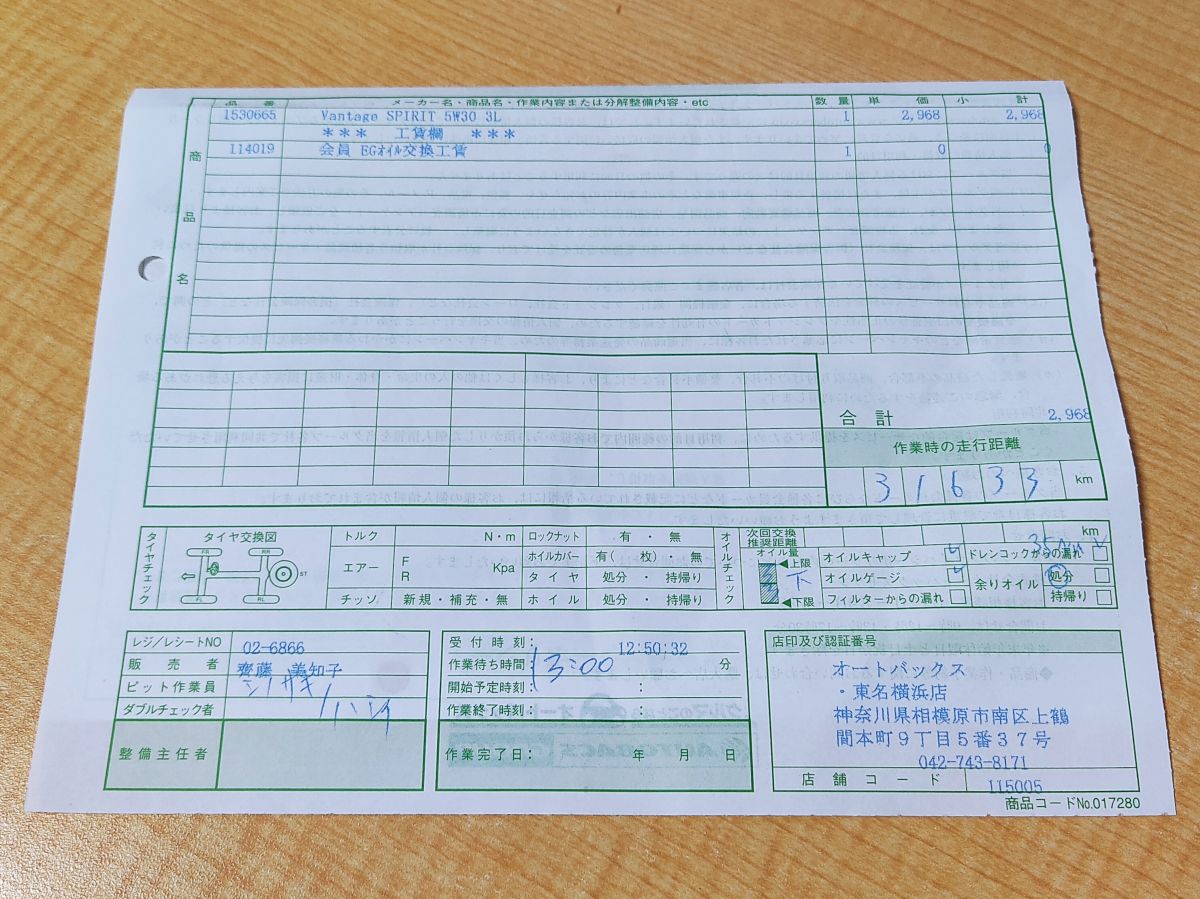 品番 メーカー名・商品名・作業内容または分解整備内容・etc 数量 単価 小計
1530665 Vantage SPIRIT 5W30 3L 1 2,968 2,968
*** 工賃欄 ***
114019 会員 EGオイル交換工賃 1 0 0
商品名
合計 2,968
作業時の走行距離
31633 km
タイヤチェック
タイヤ交換図
FR RR ST FL RL
トルク N・m
エアー F R Kpa
チッソ 新規・補充・無
ロックナット 有・無
ホイルカバー 有(枚)・無
タイヤ 処分・持帰り
ホイル 処分・持帰り
オイルチェック
次回交換推奨距離 km
オイル量 上限 下 下限
オイルキャップ ドレンコックからの漏れ
オイルゲージ 余りオイル 処分
フィルターからの漏れ 持帰り
レジ/レシートNO 02-6866
販売者 齋藤 美知子
ピット作業員
ダブルチェック者
整備主任者
受付時刻: 12:50:32
作業待ち時間: 13:00 分
開始予定時刻: :
作業終了時刻: :
作業完了日: 年 月 日
店印及び認証番号
オートバックス
・東名横浜店
神奈川県相模原市南区上鶴
間本町9丁目5番37号
042-743-8171
店舗コード 115005
商品コードNo.017280